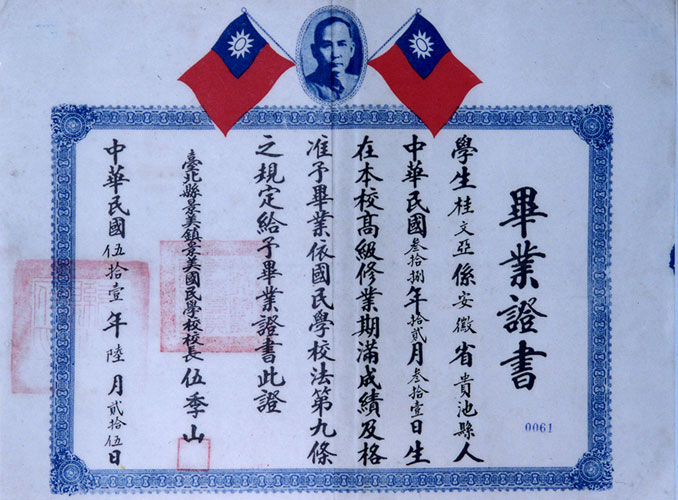 畢業證書
學生桂文亞係安徽省貴池縣人
中華民國叁拾捌年拾貳月叁拾壹日生
在本校高級修業期滿成績及格
准予畢業依國民學校法第九條
之規定給予畢業證書此證
臺北縣景美鎮景美國民學校校長伍季山
中華民國伍拾壹年陸月貳拾伍日
0061